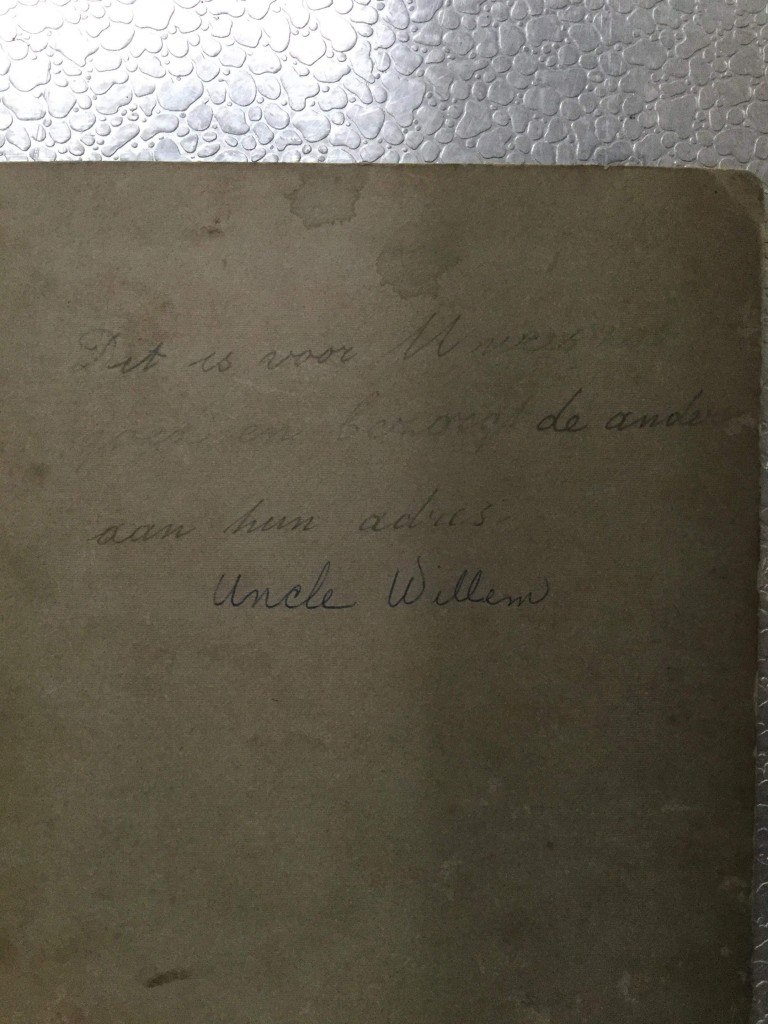 Dit is voor U wees
en bezorgt de ander
aan hun adres.
Uncle Willem